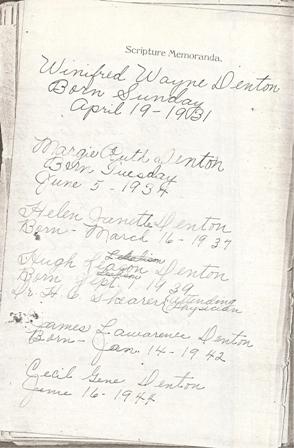 Scripture Memoranda.
Winifred Wayne Denton
Born Sunday
April 19 - 1931
Margie Ruth Denton
Born Tuesday
June 5 - 1934
Helen Denton
Born - March 16 - 1937
Hugh Denton
Born Sept. 1 1939
Dr. H. C. Shearer Attending
Physician
James Lawarence Denton
Born - Jan. 14 - 1942
Cecil Gene Denton
June 16 - 1944